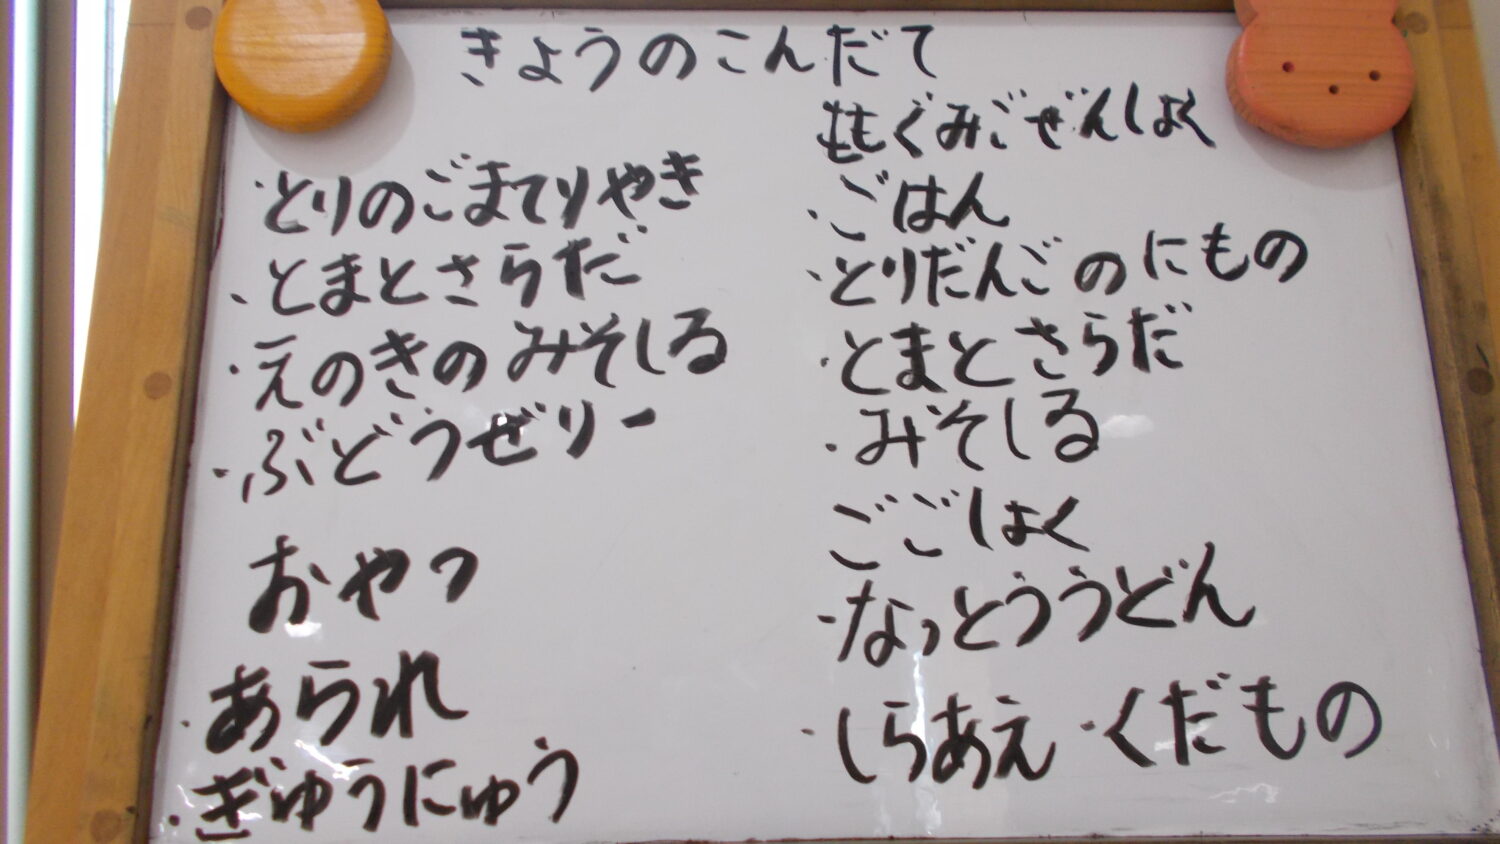 きょうのこんだて
・とりのごまてりやき
・とまとさらだ
・えのきのみそしる
・ぶどうぜりー
おやつ
・あられ
・ぎゅうにゅう
ももぐみごぜんしょく
・ごはん
・とりだんごのにもの
・とまとさらだ
・みそしる
ごごしょく
・なっとううどん
・しらあえ・くだもの